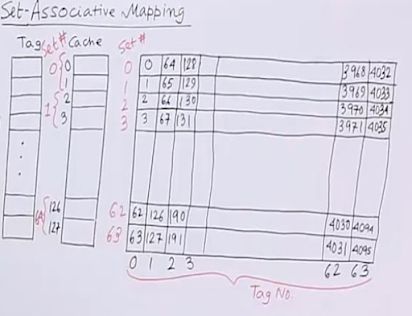 Set-Associative Mapping
Tag Set# Cache Set#
0 0 0 0 64 128 3968 4032
1 1 1 65 129 3969 4033
1 2 2 2 66 130 3970 4034
3 3 3 67 131 3971 4035
126 62 62 126 190 4030 4094
127 63 63 127 191 4031 4095
0 1 2 3 62 63
Tag No.